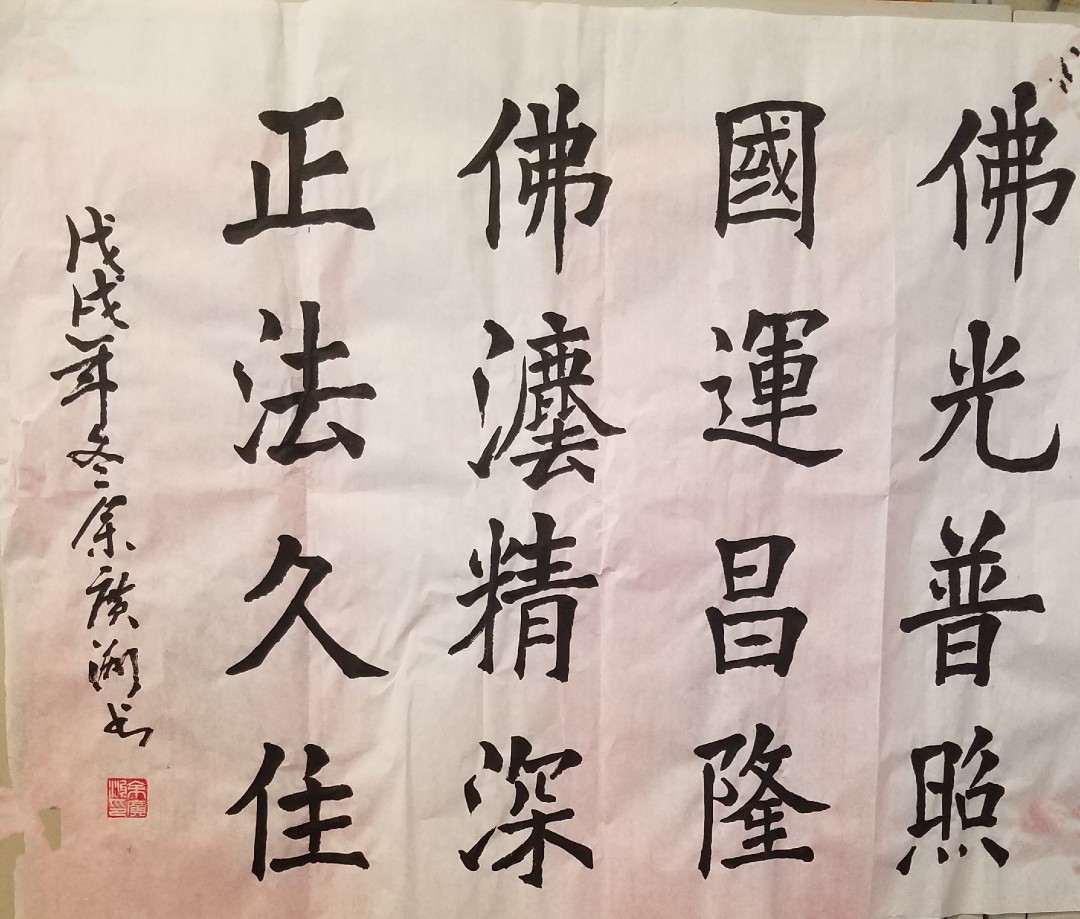 佛光普照
國運昌隆
佛灋精深
正法久住
戊戌年冬余廣书